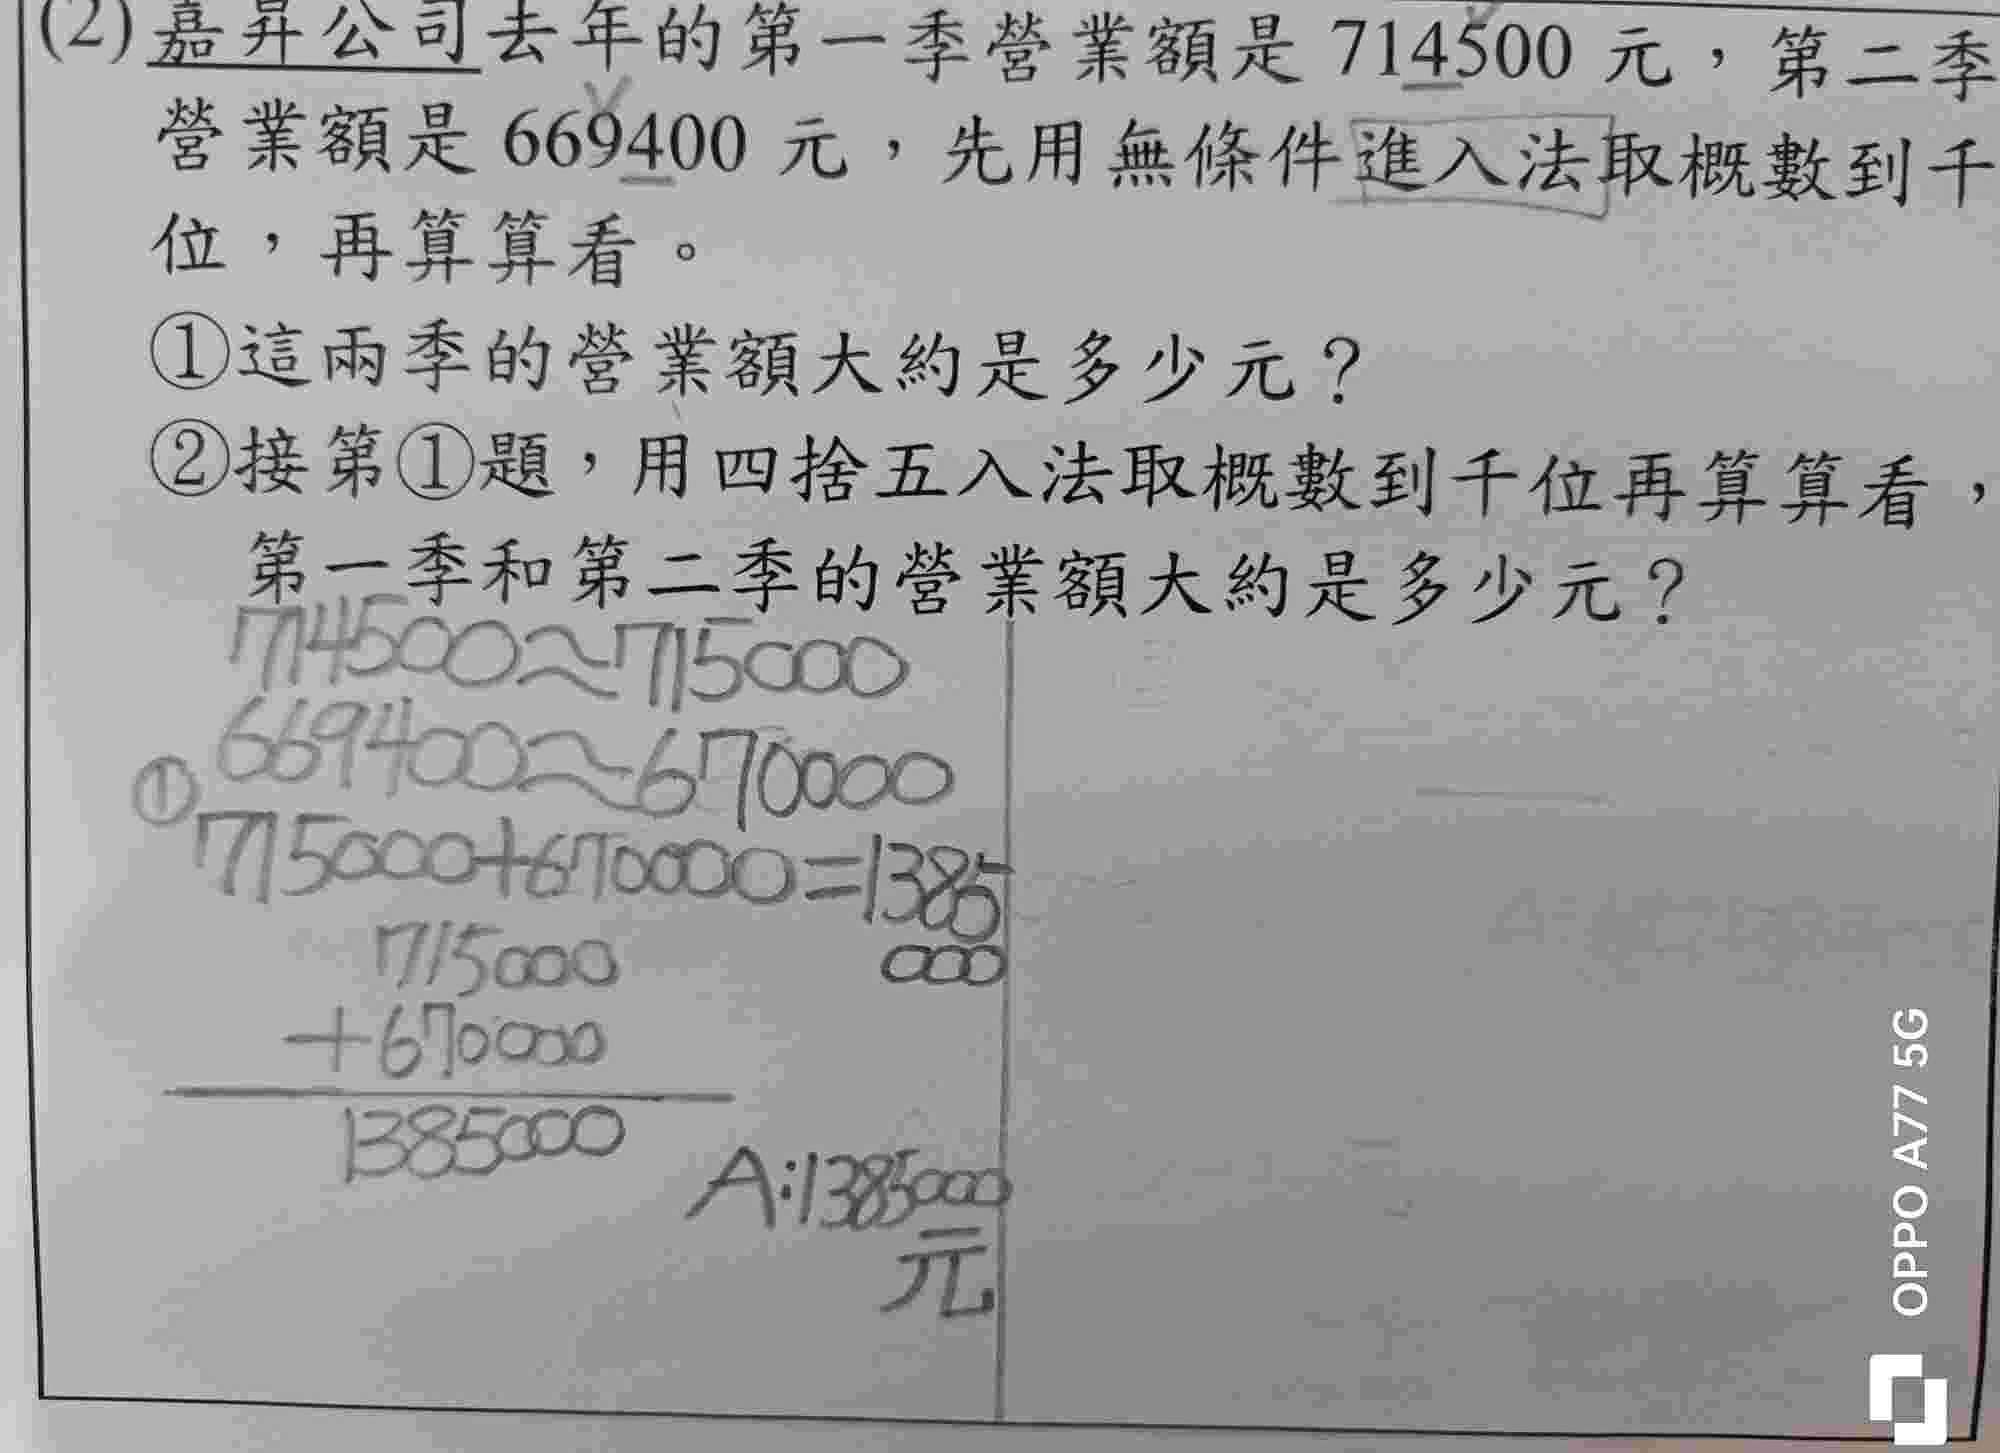 (2)嘉昇公司去年的第一季營業額是714500元，第二季
營業額是669400元，先用無條件進入法取概數到千
位，再算算看。
①這兩季的營業額大約是多少元？
②接第①題，用四捨五入法取概數到千位再算算看，
第一季和第二季的營業額大約是多少元？
714500≈715000
669400≈670000
①
715000+670000=1385
000
715000
+670000
1385000
A:1385000
元
OPPO A77 5G